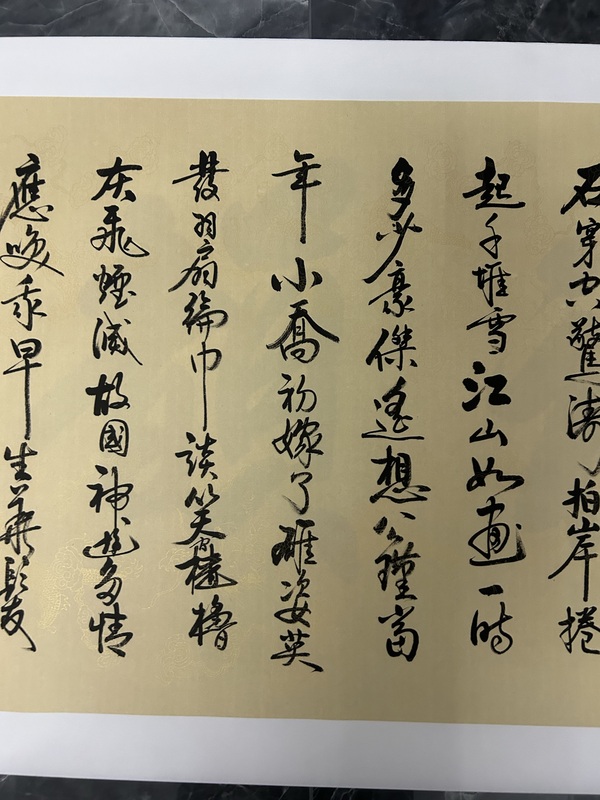 石穿空驚濤拍岸捲
起千堆雪江山如畫一時
多少豪傑遙想公瑾當
年小喬初嫁了雄姿英
發羽扇綸巾談笑間樯櫓
灰飛煙滅故國神遊多情
應咲我早生華髮